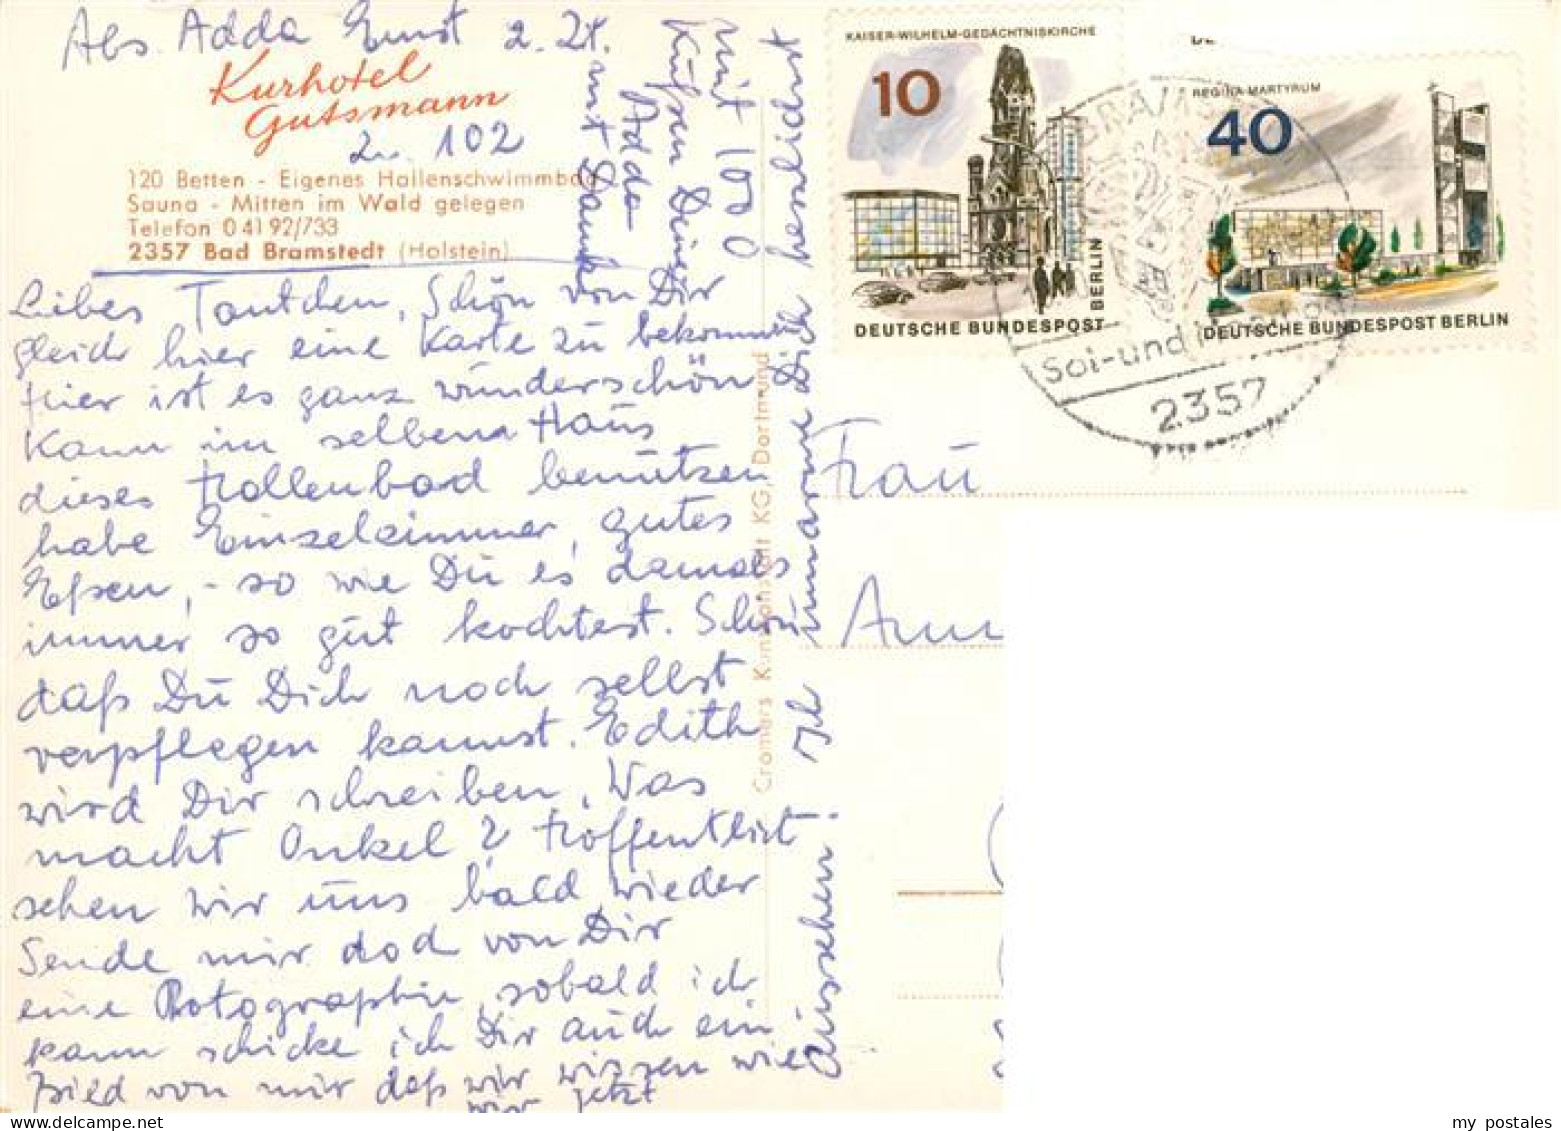 Abs. Adda Ernst z. Zt.
Kurhotel
Gutsmann
Zi. 102
120 Betten - Eigenes Hallenschwimmbad
Sauna - Mitten im Wald gelegen
Telefon 0 41 92/733
2357 Bad Bramstedt (Holstein)
Liebes Tantchen, Schön von Dir
gleich hier eine Karte zu bekommen
Hier ist es ganz wunderschön
Kann im selben Haus
dieses Hallenbad benutzen
habe Einzelzimmer, gutes
Eßen, - so wie Du es damals
immer so gut kochtest. Schön
daß Du Dich noch selbst
verpflegen kannst. Edith
wird Dir schreiben, Was
macht Onkel? Hoffentlich
sehen wir uns bald wieder
Sende mir doch von Dir
eine Photographie, sobald ich
kann schicke ich Dir auch ein
Bild von mir daß wir wissen wie
wir jetzt
aussehen. Ich umarme Dich herzlichst
Mit 1000
Küßen Deine
Adda
mit Dank
Cramers Kunstanstalt KG, Dortmund
KAISER-WILHELM-GEDÄCHTNISKIRCHE
10
DEUTSCHE BUNDESPOST
BERLIN
REGINA-MARTYRUM
40
DEUTSCHE BUNDESPOST BERLIN
Sol-und
2357
Frau
Ann
my postales